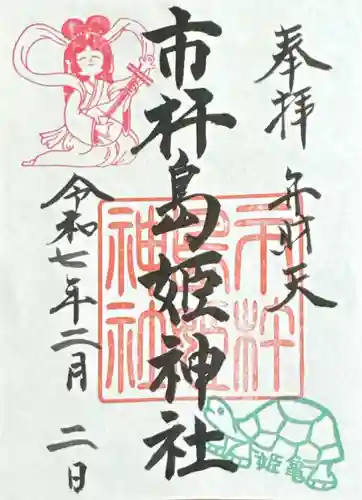 奉拝
弁財天
市杵島姫神社
令和七年二月二日
市杵島姫神社
姫亀